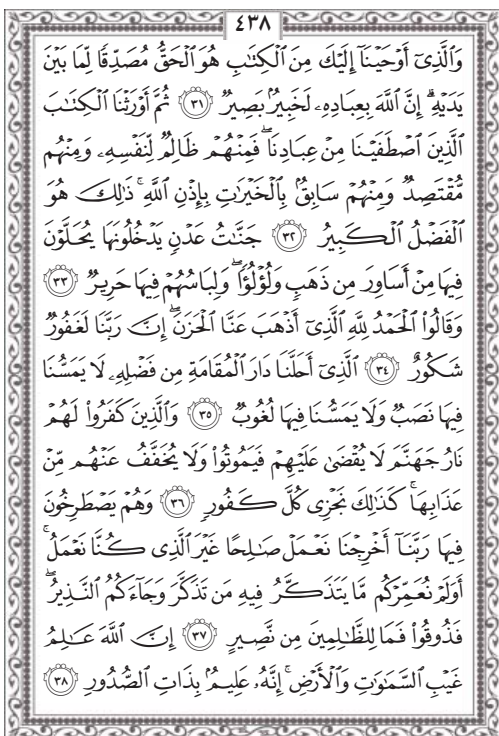 ٤٣٨
وَٱلَّذِىٓ أَوْحَيْنَآ إِلَيْكَ مِنَ ٱلْكِتَٰبِ هُوَ ٱلْحَقُّ مُصَدِّقًا لِّمَا بَيْنَ
يَدَيْهِ ۗ إِنَّ ٱللَّهَ بِعِبَادِهِۦ لَخَبِيرٌۢ بَصِيرٌ ٣١ ثُمَّ أَوْرَثْنَا ٱلْكِتَٰبَ
ٱلَّذِينَ ٱصْطَفَيْنَا مِنْ عِبَادِنَا ۖ فَمِنْهُمْ ظَالِمٌ لِّنَفْسِهِۦ وَمِنْهُم
مُّقْتَصِدٌ وَمِنْهُمْ سَابِقٌۢ بِٱلْخَيْرَٰتِ بِإِذْنِ ٱللَّهِ ۚ ذَٰلِكَ هُوَ
ٱلْفَضْلُ ٱلْكَبِيرُ ٣٢ جَنَّٰتُ عَدْنٍ يَدْخُلُونَهَا يُحَلَّوْنَ
فِيهَا مِنْ أَسَاوِرَ مِن ذَهَبٍ وَلُؤْلُؤًا ۖ وَلِبَاسُهُمْ فِيهَا حَرِيرٌ ٣٣
وَقَالُوا۟ ٱلْحَمْدُ لِلَّهِ ٱلَّذِىٓ أَذْهَبَ عَنَّا ٱلْحَزَنَ ۖ إِنَّ رَبَّنَا لَغَفُورٌ
شَكُورٌ ٣٤ ٱلَّذِىٓ أَحَلَّنَا دَارَ ٱلْمُقَامَةِ مِن فَضْلِهِۦ لَا يَمَسُّنَا
فِيهَا نَصَبٌ وَلَا يَمَسُّنَا فِيهَا لُغُوبٌ ٣٥ وَٱلَّذِينَ كَفَرُوا۟ لَهُمْ
نَارُ جَهَنَّمَ لَا يُقْضَىٰ عَلَيْهِمْ فَيَمُوتُوا۟ وَلَا يُخَفَّفُ عَنْهُم مِّنْ
عَذَابِهَا ۚ كَذَٰلِكَ نَجْزِى كُلَّ كَفُورٍ ٣٦ وَهُمْ يَصْطَرِخُونَ
فِيهَا رَبَّنَآ أَخْرِجْنَا نَعْمَلْ صَٰلِحًا غَيْرَ ٱلَّذِى كُنَّا نَعْمَلُ ۚ
أَوَلَمْ نُعَمِّرْكُم مَّا يَتَذَكَّرُ فِيهِ مَن تَذَكَّرَ وَجَآءَكُمُ ٱلنَّذِيرُ ۖ
فَذُوقُوا۟ فَمَا لِلظَّٰلِمِينَ مِن نَّصِيرٍ ٣٧ إِنَّ ٱللَّهَ عَٰلِمُ
غَيْبِ ٱلسَّمَٰوَٰتِ وَٱلْأَرْضِ ۚ إِنَّهُۥ عَلِيمٌۢ بِذَاتِ ٱلصُّدُورِ ٣٨